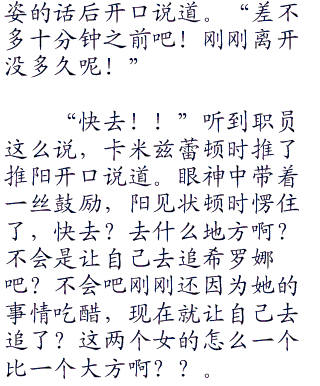 姿的话后开口说道。“差不
多十分钟之前吧！刚刚离开
没多久呢！”
“快去！！”听到职员
这么说，卡米兹蕾顿时推了
推阳开口说道。眼神中带着
一丝鼓励，阳见状顿时愣住
了，快去？去什么地方啊？
不会是让自己去追希罗娜
吧？不会吧刚刚还因为她的
事情吃醋，现在就让自己去
追了？这两个女的怎么一个
比一个大方啊？？。